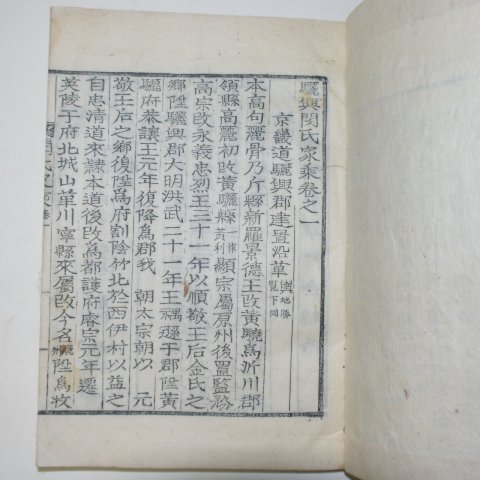 驪興閔氏家乘卷之一
京畿道驪興郡建置沿革 輿地勝覽下同
本高句麗骨乃斤縣新羅景德王改黃驍爲沂川郡
領縣高麗初改黃驪縣 一作黃利 顯宗屬原州後置監務
高宗改永義忠烈王三十一年以順敬王后金氏之
鄉陞驪興郡大明洪武二十一年王禑遜于郡陞黃
驪府恭讓王元年復降爲郡我 朝太宗朝以 元
敬王后之鄉復陞爲府割陰竹北於西伊村以益之
自忠清道來隸本道後改爲都護府睿宗元年遷
英陵于府北城山革川寧縣來屬改今名 驪州 陞爲牧